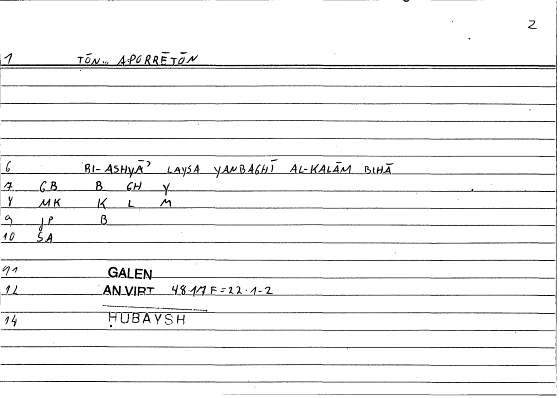 2
1 TŌN... APORRĒTŌN
6 BI-ASHYĀʾ LAYSA YANBAGHĪ AL-KALĀM BIHĀ
7 GB B GH Y
8 MK K L M
9 JP B
10 SA
11 GALEN
12 AN.VIRT 4817F=22.1-2
14 ḤUBAYSH